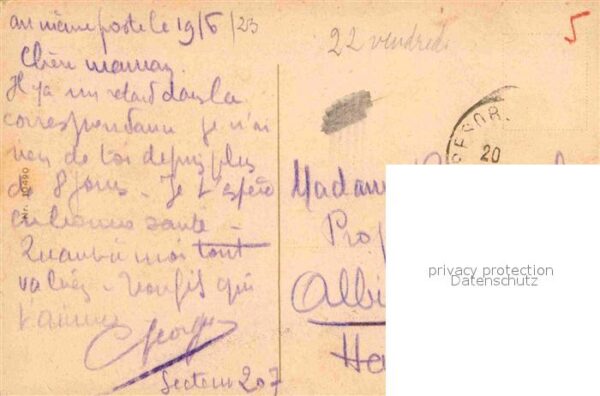 au même poste le 19/6/23
Chère maman,
Il y a un retard dans la
correspondance je n'ai
rien de toi depuis plus
de 8 jours - Je t'espère
en bonne santé -
Quant à moi tout
va bien - Ton fils qui
t'aime
Georges
Secteur 207
22 vendredi
5
20
Madame
Pro
Albi
Ha
Nr. 10490
privacy protection
Datenschutz